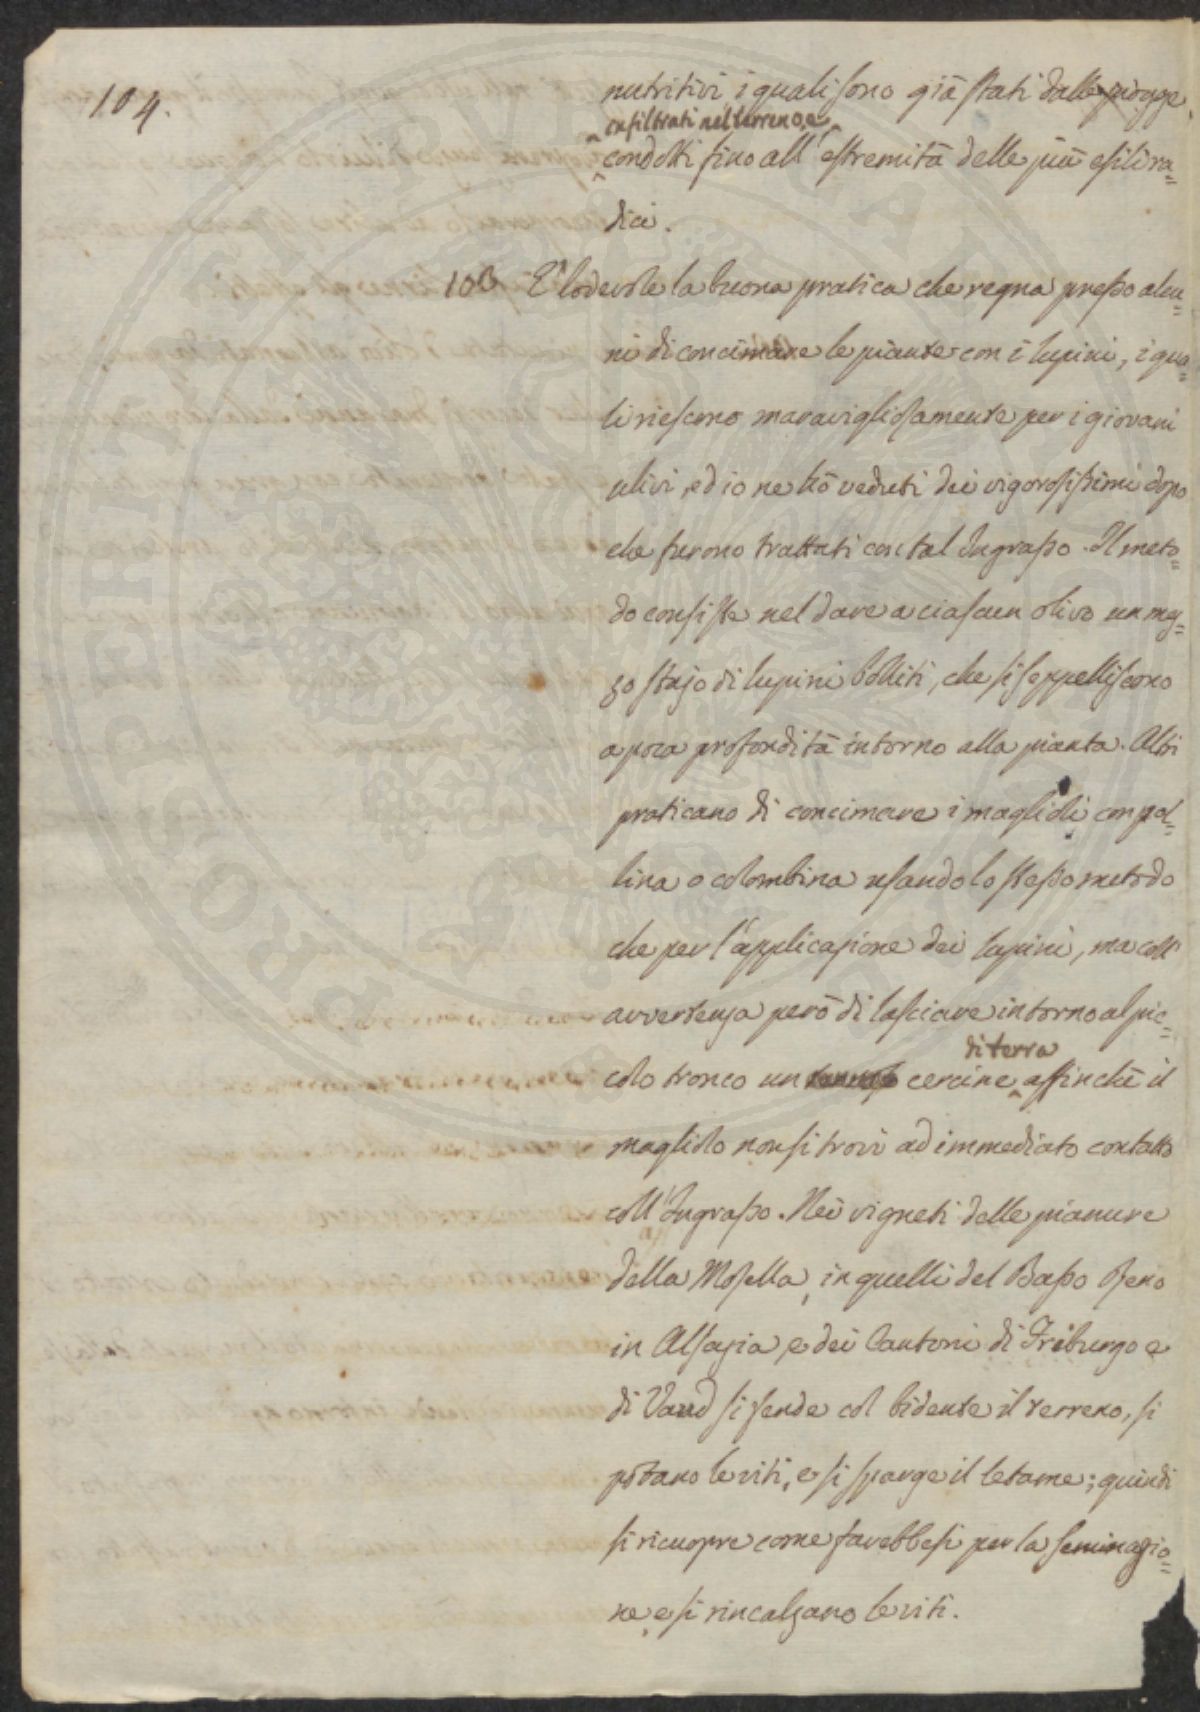 104.
nutritivi, i quali sono già stati dalle piogge
infiltrati nel terreno, e
condotti fino all'estremità delle più esili ra=
dici.
103 E' lodevole la buona pratica che regna presso alcu=
ni di concimare le piante con i lupini, i qua=
li riescono maravigliosamente per i giovani
ulivi, ed io ne hò veduti dei vigorosissimi dopo
che furono trattati con tal Ingrasso. Il meto=
do consiste nel dare a ciascun olivo un mez=
zo stajo di lupini bolliti, che si seppelliscono
a poca profondità intorno alla pianta. Altri
praticano di concimare i maglioli con pol=
lina o colombina usando lo stesso metodo
che per l'applicazione dei lupini, ma coll'
avvertenza però di lasciare intorno al pic=
di terra
colo tronco un cercine affinchè il
magliolo non si trovi ad immediato contatto
coll'Ingrasso. Nei vigneti delle pianure
della Mosella, in quelli del Basso Reno
in Alsazia, e dei Cantoni di Friburgo e
di Vaud si fende col bidente il terreno, si
potano le viti, e si sparge il letame; quindi
si ricuopre come farebbesi per la seminazio=
ne, e si rincalzano le viti.
PROSPERITATI PUBLICAE